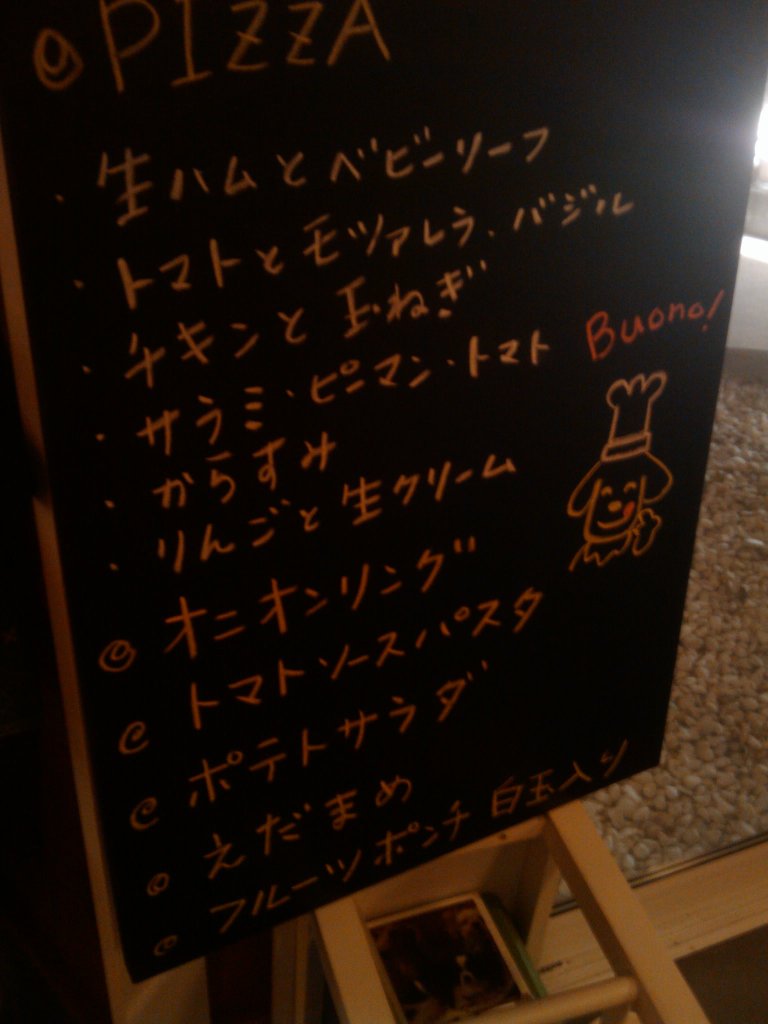 ◎PIZZA
・生ハムとベビーリーフ
・トマトとモッツァレラ、バジル
・チキンと玉ねぎ
・サラミ・ピーマン・トマト
Buono!
・からすみ
・りんごと生クリーム
◎オニオンリング
◎トマトソースパスタ
◎ポテトサラダ
◎えだまめ
◎フルーツポンチ 白玉入り